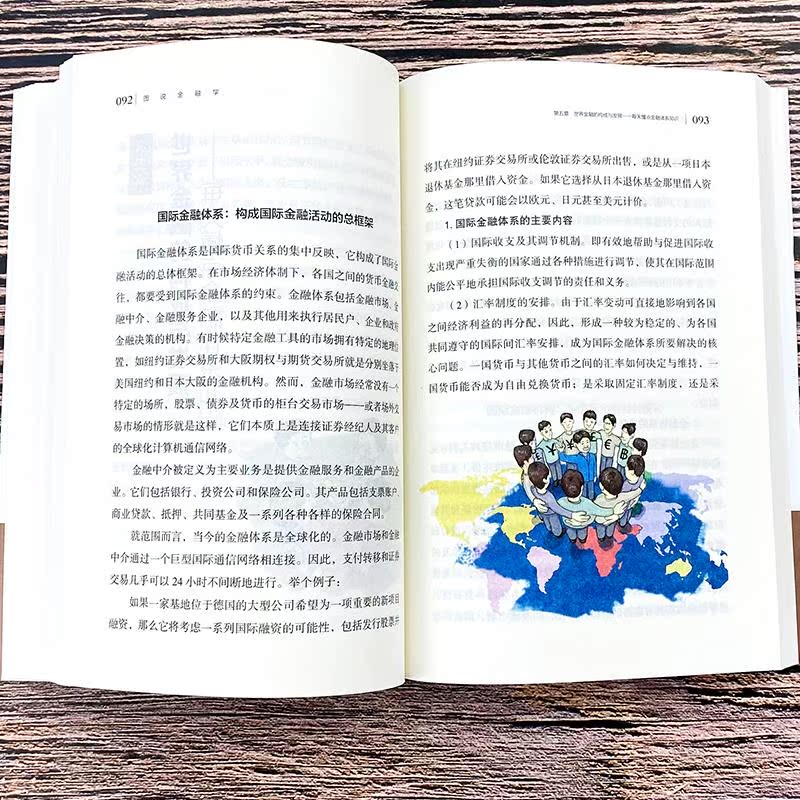 092 图说金融学
国际金融体系：构成国际金融活动的总框架
国际金融体系是国际货币关系的集中反映，它构成了国际金
融活动的总体框架。在市场经济体制下，各国之间的货币金融交
往，都要受到国际金融体系的约束。金融体系包括金融市场、金
融中介、金融服务企业，以及其他用来执行居民户、企业和政府
金融决策的机构。有时候特定金融工具的市场拥有特定的地理位
置，如纽约证券交易所和大阪期权与期货交易所就是分别坐落于
美国纽约和日本大阪的金融机构。然而，金融市场经常没有一个
特定的场所，股票、债券及货币的柜台交易市场——或者场外交
易市场的情形就是这样，它们本质上是连接证券经纪人及其客户
的全球化计算机通信网络。
金融中介被定义为主要业务是提供金融服务和金融产品的企
业。它们包括银行、投资公司和保险公司。其产品包括支票账户、
商业贷款、抵押、共同基金及一系列各种各样的保险合同。
就范围而言，当今的金融体系是全球化的。金融市场和金融
中介通过一个巨型国际通信网络相连接。因此，支付转移和证券
交易几乎可以 24 小时不间断地进行。举个例子：
如果一家基地位于德国的大型公司希望为一项重要的新项目
融资，那么它将考虑一系列国际融资的可能性，包括发行股票并
第五章 世界金融的构成与发展——每天懂点金融体系知识 093
将其在纽约证券交易所或伦敦证券交易所出售，或是从一项日本
退休基金那里借入资金。如果它选择从日本退休基金那里借入资
金，这笔贷款可能会以欧元、日元甚至美元计价。
1. 国际金融体系的主要内容
（1）国际收支及其调节机制。即有效地帮助与促进国际收
支出现严重失衡的国家通过各种措施进行调节，使其在国际范围
内能公平地承担国际收支调节的责任和义务。
（2）汇率制度的安排。由于汇率变动可直接地影响到各国
之间经济利益的再分配，因此，形成一种较为稳定的、为各国
共同遵守的国际间汇率安排，成为国际金融体系所要解决的核
心问题。一国货币与其他货币之间的汇率如何决定与维持，一
国货币能否成为自由兑换货币；是采取固定汇率制度，还是采